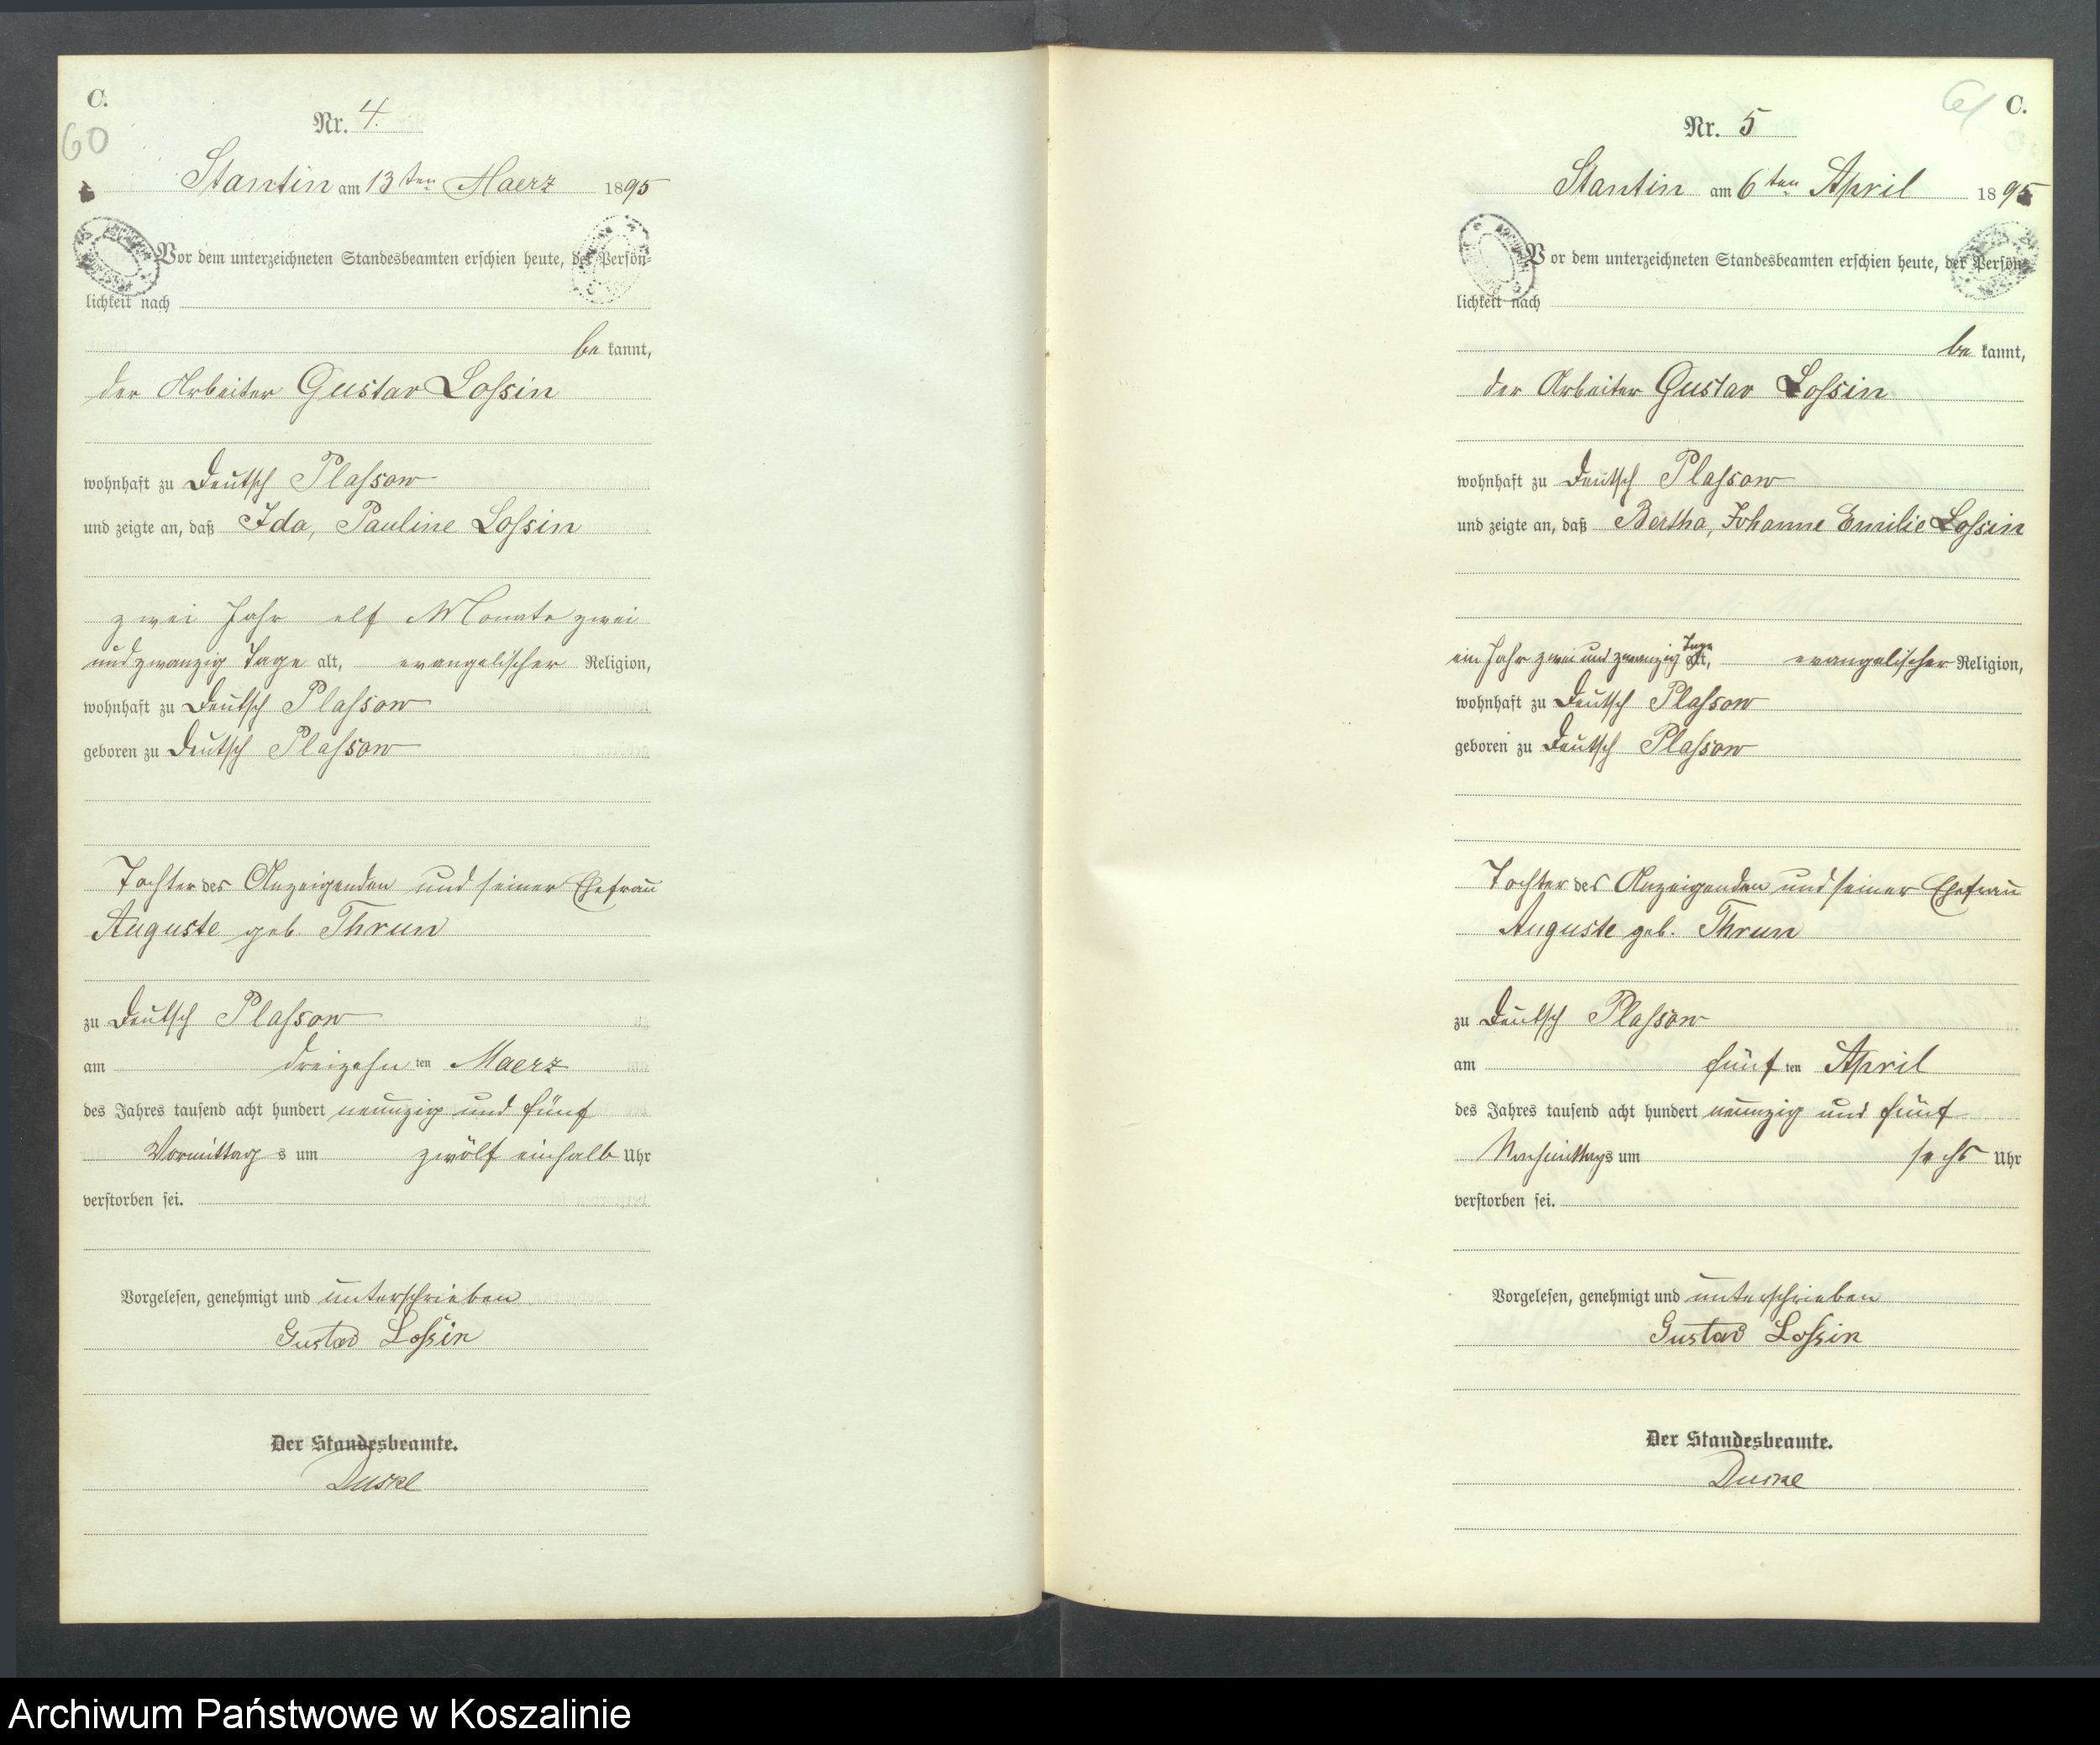 C.
60
Nr. 4.
Stantin am 13ten Maerz 1895
Vor dem unterzeichneten Standesbeamten erschien heute, der Persön-
lichkeit nach
be kannt,
der Arbeiter Gustav Loſsin
wohnhaft zu Deutsch Plaſsow
und zeigte an, daß Ida, Pauline Loſsin
zwei Jahr elf Monate zwei
und zwanzig Tage alt, evangelischer Religion,
wohnhaft zu Deutsch Plaſsow
geboren zu Deutsch Plaſsow
Tochter des Anzeigenden und seiner Ehefrau
Auguste geb Thrun
zu Deutsch Plaſsow
am dreizehn ten Maerz
des Jahres tausend acht hundert neunzig und fünf
Vormittag s um zwölf einhalb Uhr
verstorben sei.
Vorgelesen, genehmigt und unterschrieben
Gustav Loſsin
Der Standesbeamte.
61 C.
Nr. 5
Stantin am 6ten April 1895
Vor dem unterzeichneten Standesbeamten erschien heute, der Persön-
lichkeit nach
be kannt,
der Arbeiter Gustav Loſsin
wohnhaft zu Deutsch Plaſsow
und zeigte an, daß Bertha, Johanne Emilie Loſsin
ein Jahr zwei und zwanzig Tage alt, evangelischer Religion,
wohnhaft zu Deutsch Plaſsow
geboren zu Deutsch Plaſsow
Tochter des Anzeigenden und seiner Ehefrau
Auguste geb. Thrun
zu Deutsch Plaſsow
am fünf ten April
des Jahres tausend acht hundert neunzig und fünf
Nachmittags um sechs Uhr
verstorben sei.
Vorgelesen, genehmigt und unterschrieben
Gustav Loſsin
Der Standesbeamte.
Archiwum Państwowe w Koszalinie